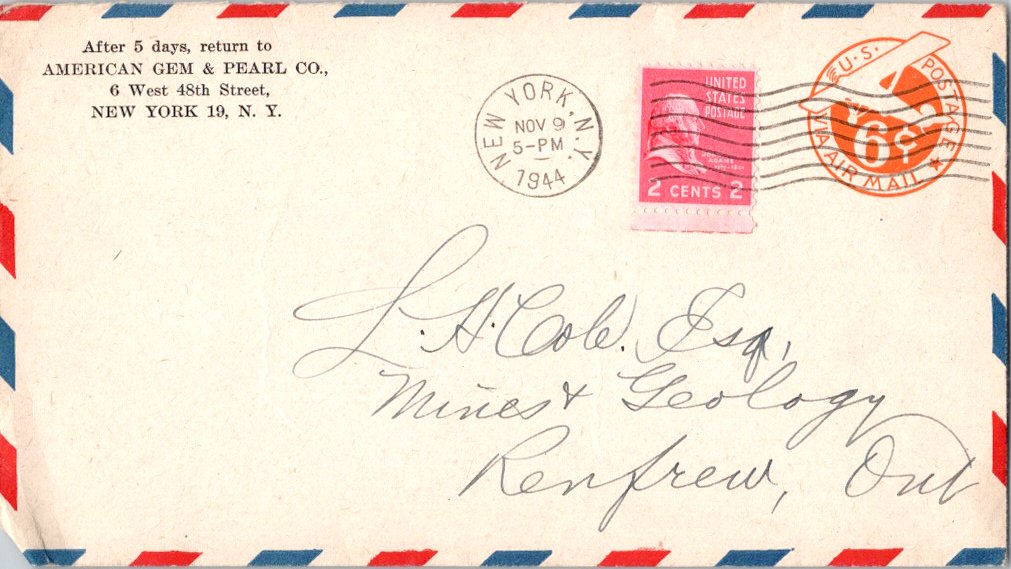 After 5 days, return to
AMERICAN GEM & PEARL CO.,
6 West 48th Street,
NEW YORK 19, N. Y.
NEW YORK, N.Y.
NOV 9
5-PM
1944
UNITED
STATES
POSTAGE
ADAMS
2 CENTS 2
U.S. POSTAGE
6¢
VIA AIR MAIL
L. H. Cole. Esq,
Mines & Geology
Renfrew, Ont